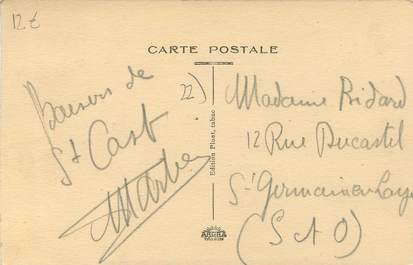 12€
CARTE POSTALE
Baisers de
St Cast
Marthe
22)
Edition Pinet, tabac
Madame Bidard
12 Rue Ducastel
St Germain en Laye
(S et O)